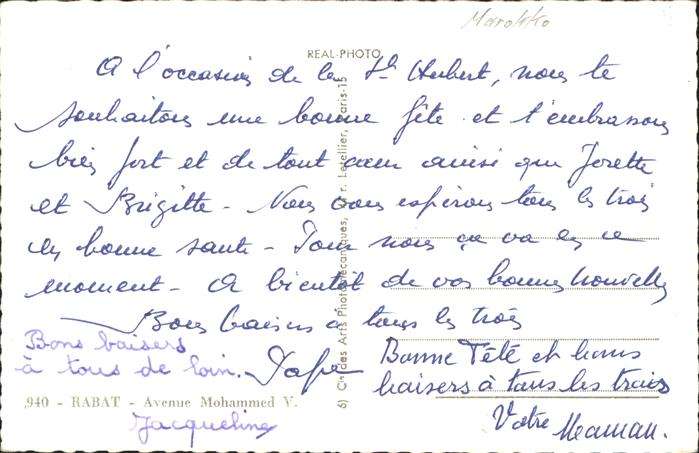 Marokko
REAL-PHOTO
A l'occasion de la St Hubert, nous te
souhaitons une bonne fête et t'embrassons
bien fort et de tout cœur ainsi que Josette
et Brigitte - Nous vous espérons tous les trois
en bonne santé - Pour nous ça va en ce
moment - A bientôt de vos bonnes nouvelles
Bons baisers à tous les trois
Papa
Bons baisers
à tous de loin.
Jacqueline
Bonne Fête et bons
baisers à tous les trois
Votre Maman.
940 - RABAT - Avenue Mohammed V.
6) Cie des Arts Photomécaniques, r. Letellier, Paris-15